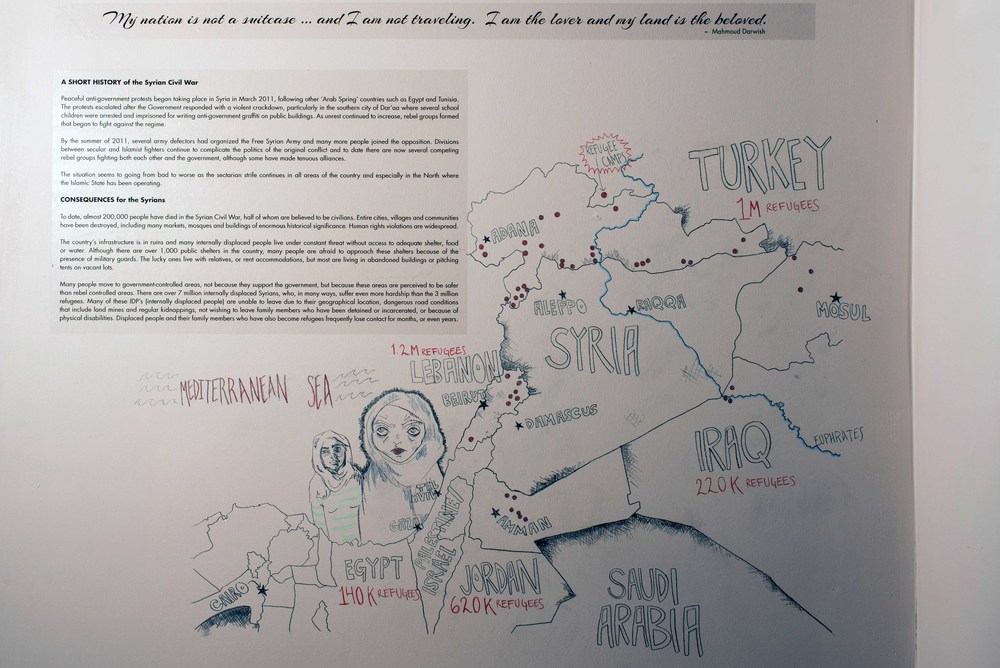 My nation is not a suitcase ... and I am not traveling. I am the lover and my land is the beloved.
~ Mahmoud Darwish
A SHORT HISTORY of the Syrian Civil War
Peaceful anti-government protests began taking place in Syria in March 2011, following other 'Arab Spring' countries such as Egypt and Tunisia.
The protests escalated after the Government responded with a violent crackdown, particularly in the southern city of Dar'aa where several school
children were arrested and imprisoned for writing anti-government graffiti on public buildings. As unrest continued to increase, rebel groups formed
that began to fight against the regime.
By the summer of 2011, several army defectors had organized the Free Syrian Army and many more people joined the opposition. Divisions
between secular and Islamist fighters continue to complicate the politics of the original conflict and to date there are now several competing
rebel groups fighting both each other and the government, although some have made tenuous alliances.
The situation seems to going from bad to worse as the sectarian strife continues in all areas of the country and especially in the North where
the Islamic State has been operating.
CONSEQUENCES for the Syrians
To date, almost 200,000 people have died in the Syrian Civil War, half of whom are believed to be civilians. Entire cities, villages and communities
have been destroyed, including many markets, mosques and buildings of enormous historical significance. Human rights violations are widespread.
The country's infrastructure is in ruins and many internally displaced people live under constant threat without access to adequate shelter, food
or water. Although there are over 1,000 public shelters in the country, many people are afraid to approach these shelters because of the
presence of military guards. The lucky ones live with relatives, or rent accommodations, but most are living in abandoned buildings or pitching
tents on vacant lots.
Many people move to government-controlled areas, not because they support the government, but because these areas are perceived to be safer
than rebel controlled areas. There are over 7 million internally displaced Syrians, who, in many ways, suffer even more hardship than the 3 million
refugees. Many of these IDP's (internally displaced people) are unable to leave due to their geographical location, dangerous road conditions
that include land mines and regular kidnappings, not wishing to leave family members who have been detained or incarcerated, or because of
physical disabilities. Displaced people and their family members who have also become refugees frequently lose contact for months, or even years.
REFUGEE
CAMPS
TURKEY
1M REFUGEES
ADANA
ALEPPO
RAQQA
MOSUL
SYRIA
1.2M REFUGEES
LEBANON
BEIRUT
MEDITERRANEAN SEA
DAMASCUS
IRAQ
220K REFUGEES
EUPHRATES
TEL
AVIV
GAZA
AMMAN
PALESTINE/
ISRAEL
EGYPT
140K REFUGEES
JORDAN
620K REFUGEES
CAIRO
SAUDI
ARABIA